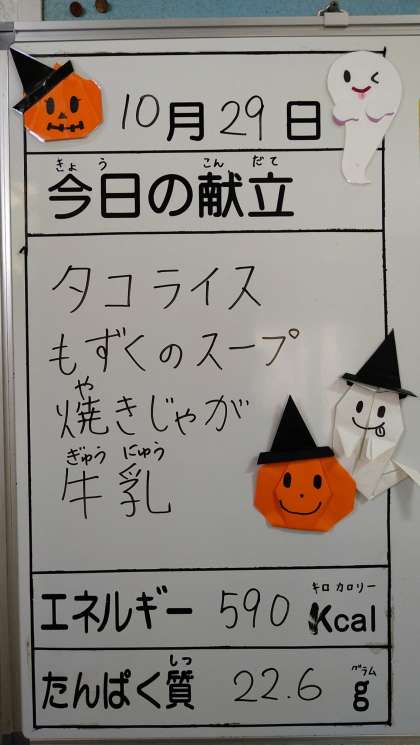 10月29日
きょう こんだて
今日の献立
タコライス
もずくのスープ
や
焼きじゃが
ぎゅう にゅう
牛乳
キロカロリー
エネルギー 590 Kcal
しつ グラム
たんぱく質 22.6 g